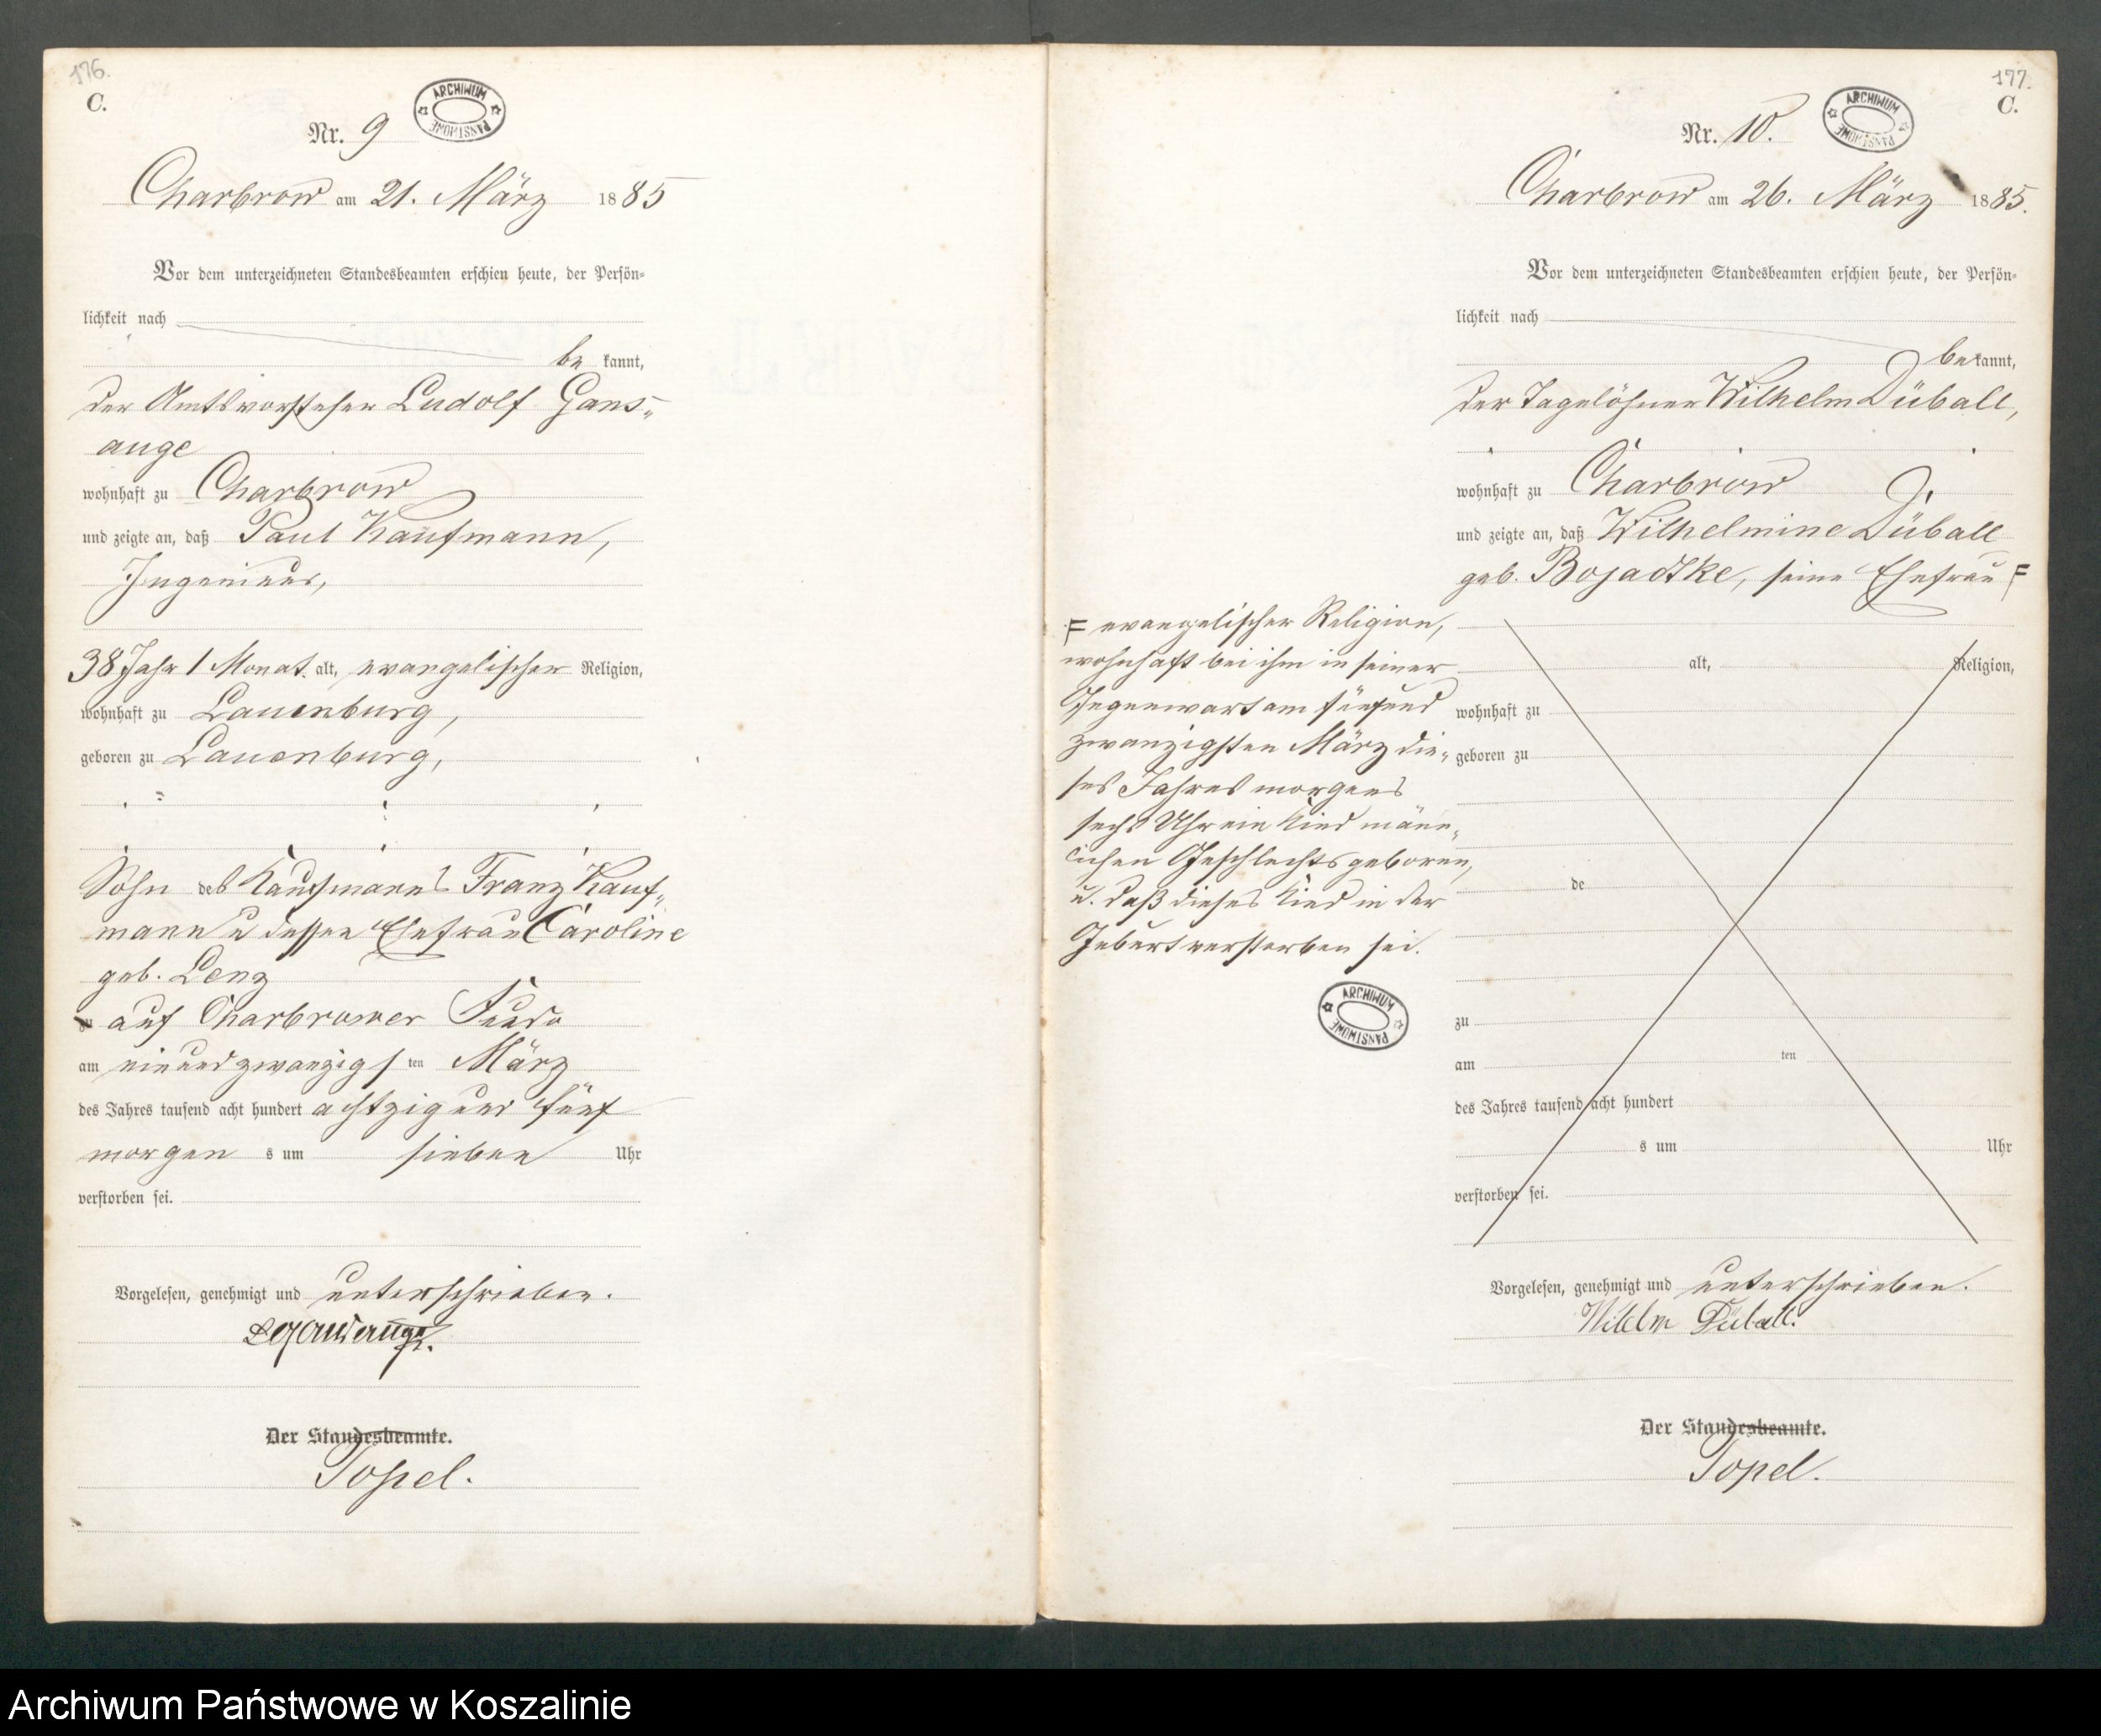 176.
C.
ARCHIWUM PAŃSTWOWE
Nr. 9
Charbrow am 21. März 1885
Vor dem unterzeichneten Standesbeamten erschien heute, der Persön-
lichkeit nach
be kannt,
der Amtsvorsteher Ludolf Gans-
ange
wohnhaft zu Charbrow
und zeigte an, daß Paul Kaufmann,
Ingenieur,
38 Jahr 1 Monat alt, evangelischer Religion,
wohnhaft zu Lauenburg,
geboren zu Lauenburg,
Sohn des Kaufmanns Franz Kauf-
mann u dessen Ehefrau Caroline
geb. Lenz
zu auf Charbrower
am einundzwanzigsten März
des Jahres tausend acht hundert achtzig und fünf
morgens um sieben Uhr
verstorben sei.
Vorgelesen, genehmigt und unterschrieben.
LGansauge.
Der Standesbeamte.
Topel.
177.
C.
ARCHIWUM PAŃSTWOWE
Nr. 10.
Charbrow am 26. März 1885.
Vor dem unterzeichneten Standesbeamten erschien heute, der Persön-
lichkeit nach
be kannt,
der Tagelöhner Wilhelm Düball,
wohnhaft zu Charbrow
und zeigte an, daß Wilhelmine Düball
geb. Bojadtke, seine Ehefrau F
F evangelischer Religion,
wohnhaft bei ihm in seiner
Gegenwart am fünfund
zwanzigsten März die-
ses Jahres morgens
sechs Uhr ein Kind männ-
lichen Geschlechts geboren,
u. daß dieses Kind in der
Geburt verstorben sei.
ARCHIWUM PAŃSTWOWE
alt, Religion,
wohnhaft zu
geboren zu
de
zu
am ten
des Jahres tausend acht hundert
s um Uhr
verstorben sei.
Vorgelesen, genehmigt und unterschrieben.
Wilelm Düball.
Der Standesbeamte.
Topel.
Archiwum Państwowe w Koszalinie